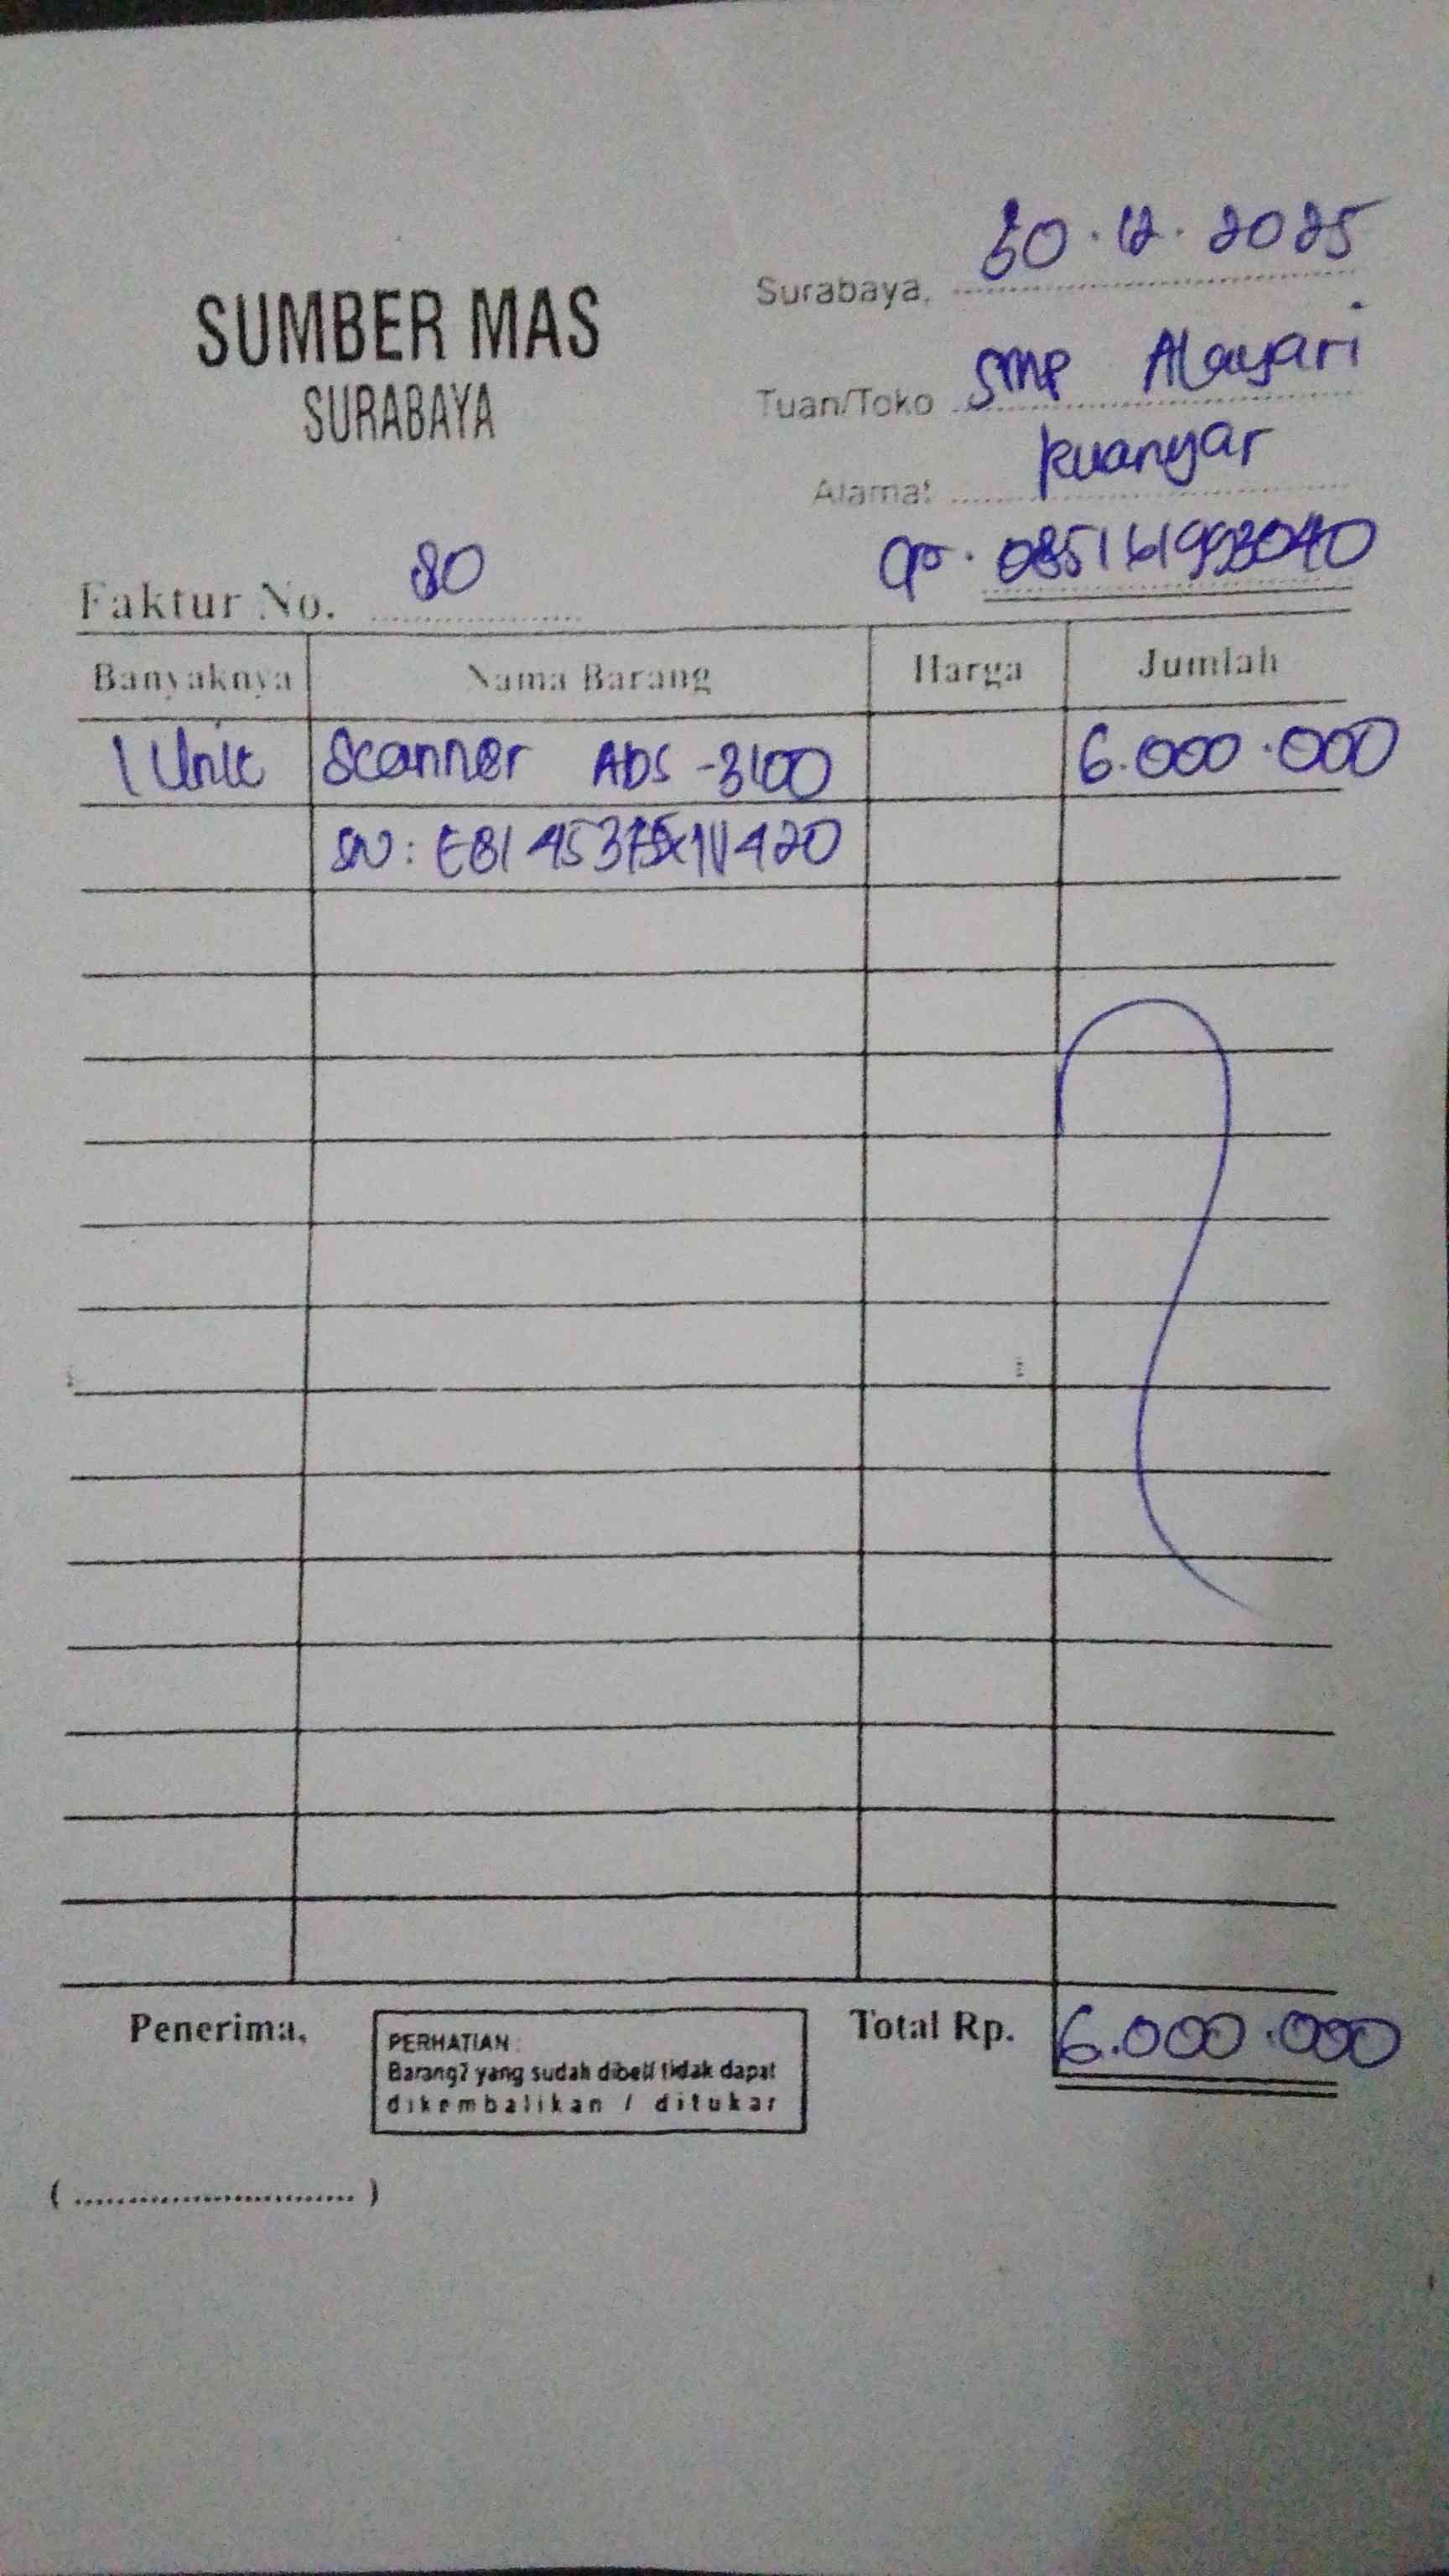 30.12.2025
Surabaya,
SUMBER MAS
SURABAYA
Tuan/Toko SMP Alasyari
Alamat Kuanyar
CP. 085161993040
Faktur No. 80
Banyaknya Nama Barang Harga Jumlah
1 Unit Scanner ADS-3100 6.000.000
SN:
Penerima,
Total Rp. 6.000.000
PERHATIAN:
Barang2 yang sudah dibeli tidak dapat
dikembalikan / ditukar
(..............................)